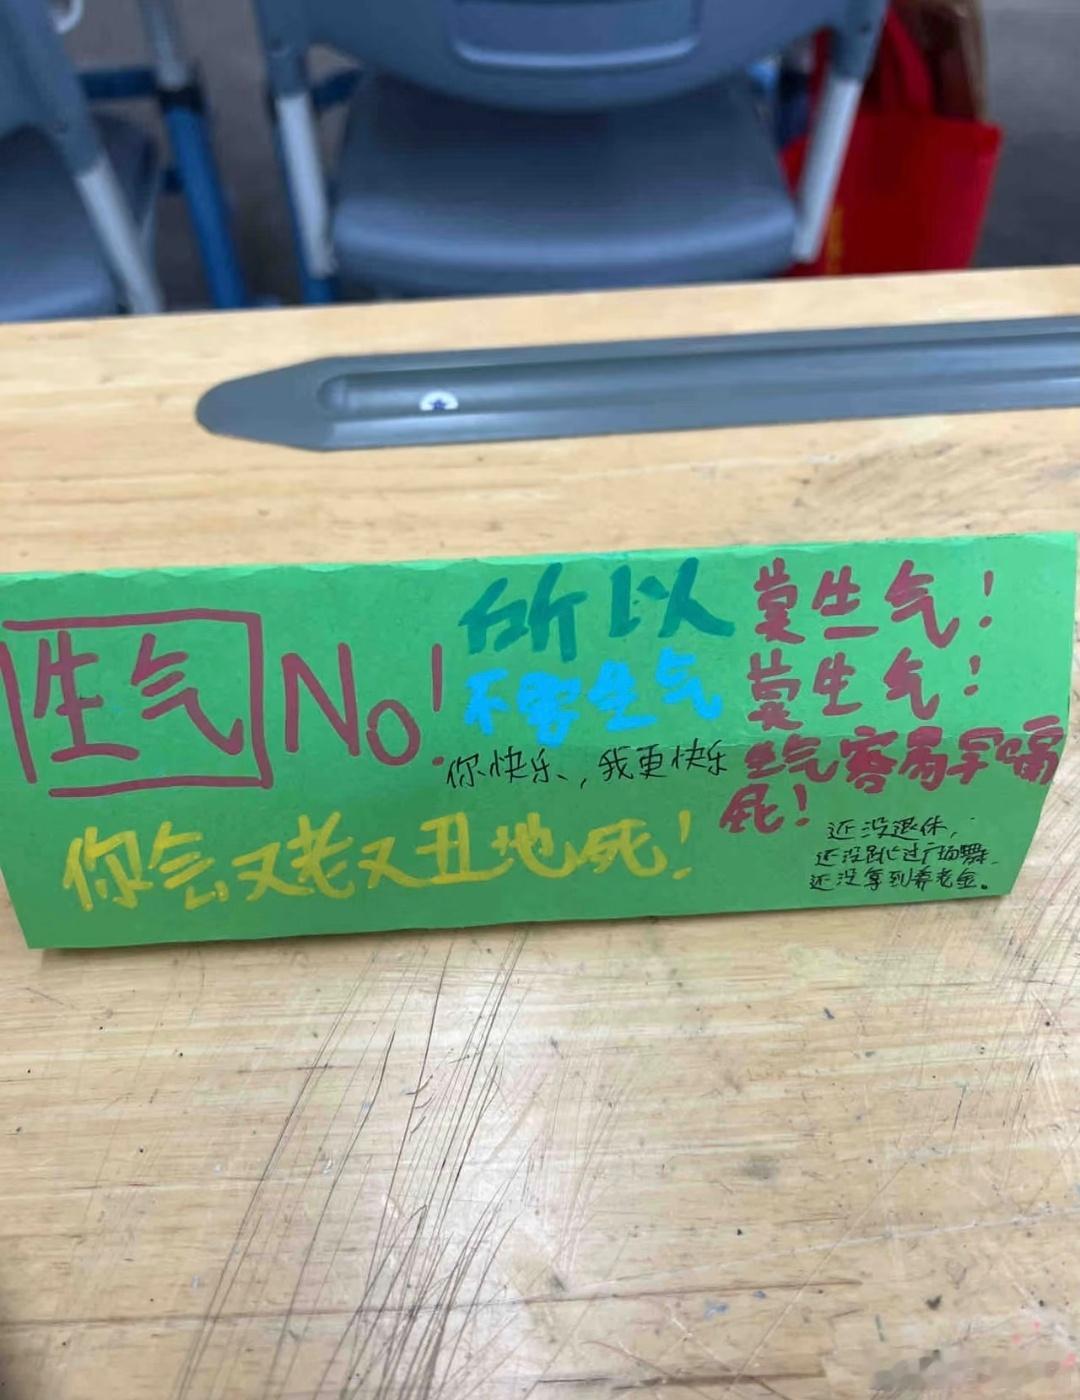 生气 No!
所以
不要生气
你快乐、,我更快乐
你会又老又丑地死!
莫生气!
莫生气!
生气容易早嗝
死!
还没退休,
还没跳过广场舞.
还没拿到养老金。